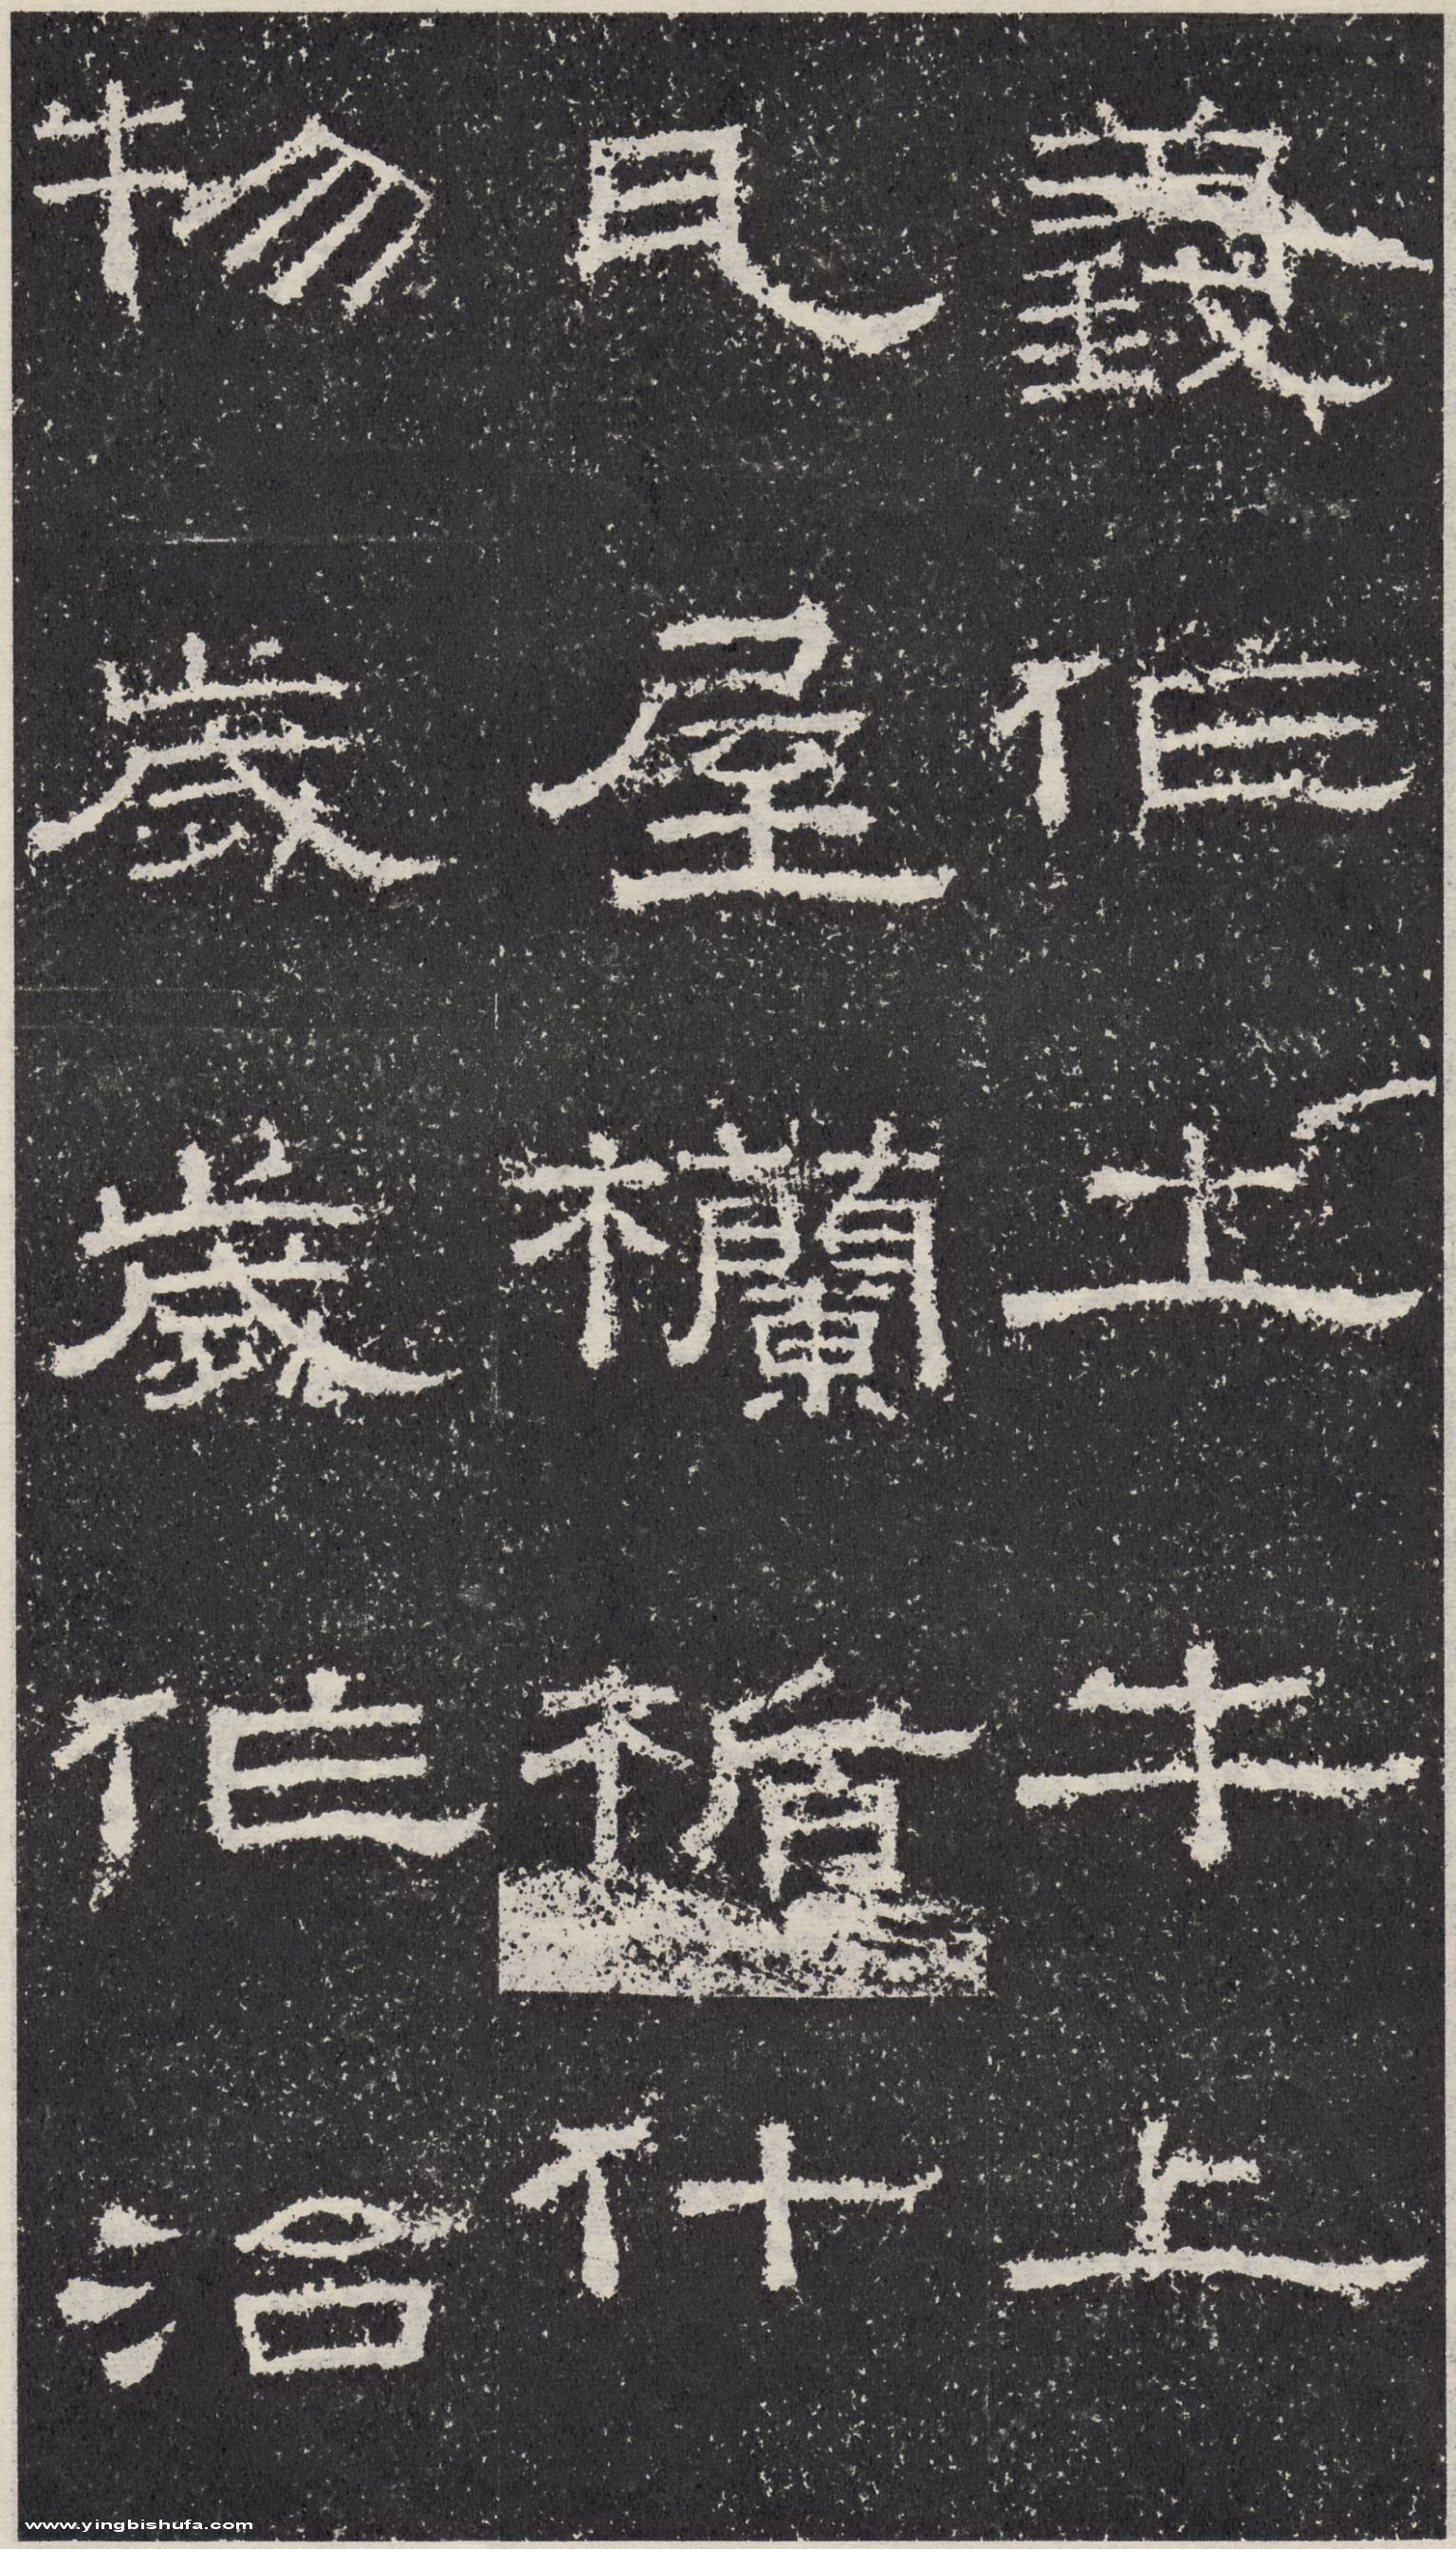 義作土牛上
瓦屋欄楯什
物歲歲作治
www.yingbishufa.com